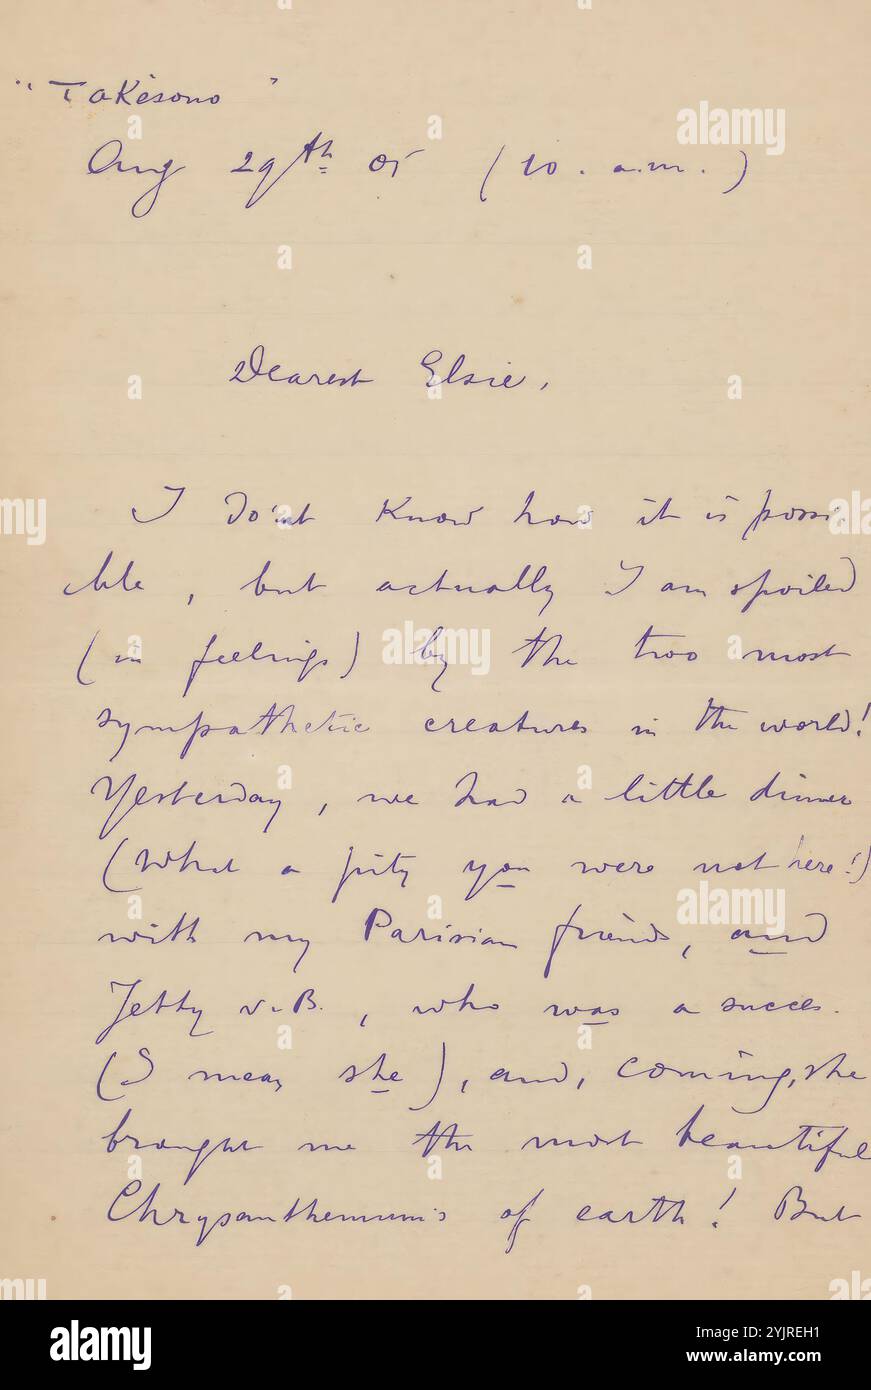 "Takésono"
Aug 29th 05 (10. a.m.)
Dearest Elsie,
I do'nt know how it is possi-
ble, but actually I am spoiled
(in feelings) by the two most
sympathetic creatures in the world!
Yesterday, we had a little dinner
(What a pity you were not here!)
with my Parisian friends, and
Jetty v.B., who was a succes.
(I mean she), and, coming, she
brought me the most beautiful
Chrysanthemums of earth! But
alamy
Image ID: 2YJREH1
www.alamy.com